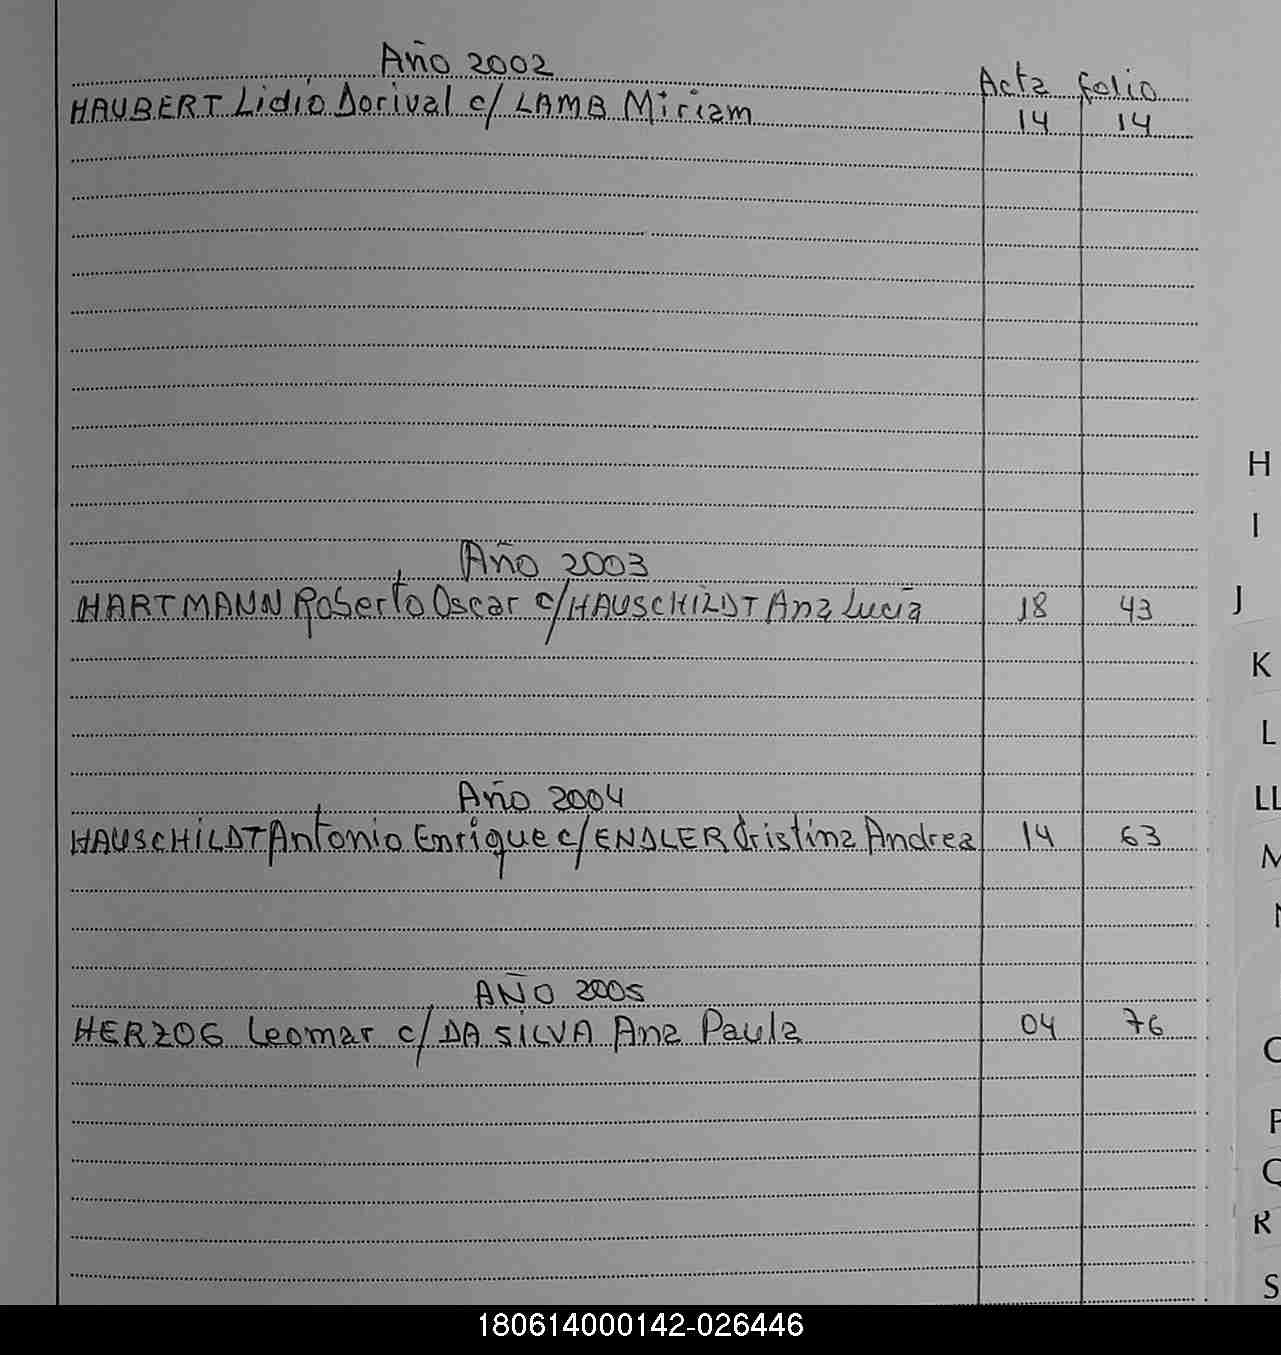 Año 2002
Acta folio
HAUBERT Lidio Dorival c/ LAMB Miriam 14 14
Año 2003
HARTMANN Roberto Oscar c/ HAUSCHILDT Ana Lucia 18 43
Año 2004
HAUSCHILDT Antonio Enrique c/ ENDLER Cristina Andrea 14 63
AÑO 2005
HERZOG Leomar c/ DA SILVA Ana Paula 04 76
H
I
J
K
L
LL
M
N
O
P
Q
R
S
180614000142-026446